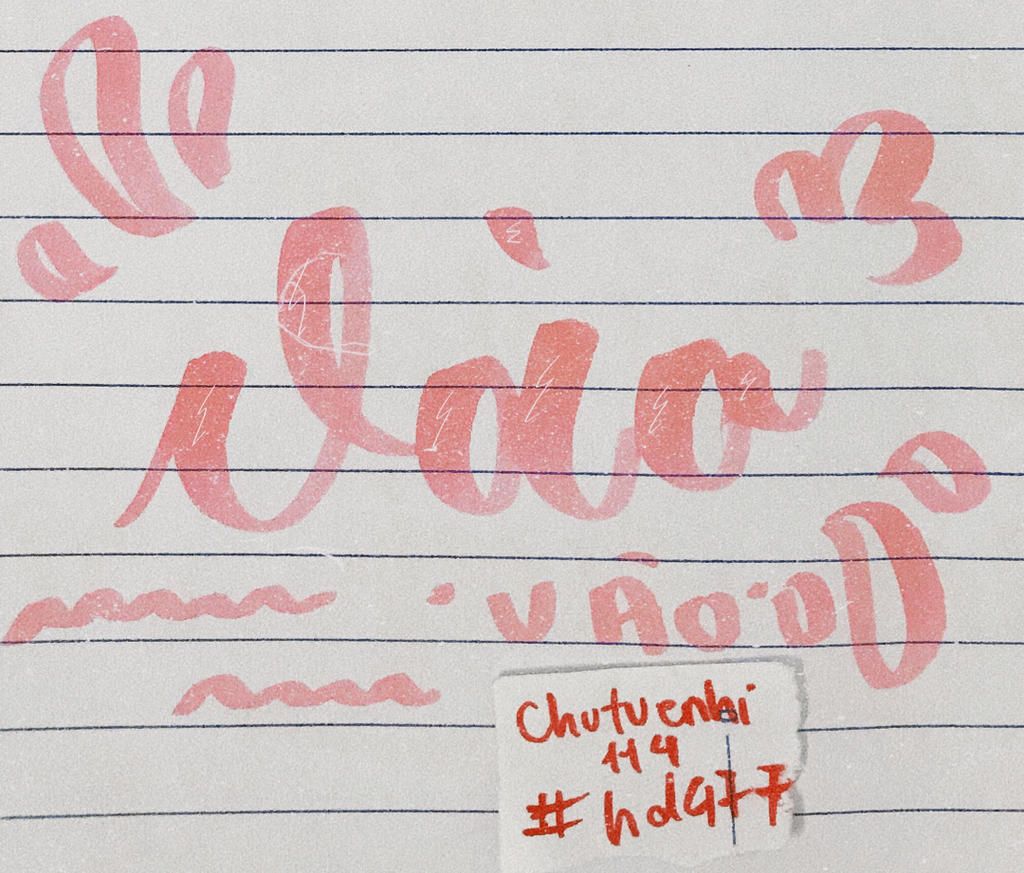 vào
VÀO
Chutuenhi
114
#hd977